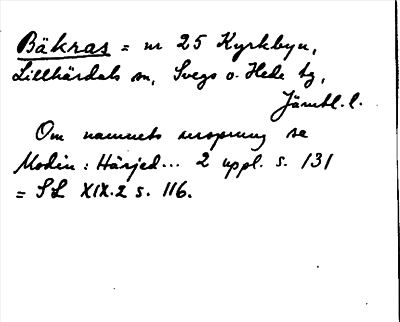 Bäkras = nr 25 Kyrkbyn,
Lillhärdals sn, Svegs o. Hede tg,
Jämtl. l.
Om namnets ursprung se
Modin: Härjed... 2 uppl. s. 131
= SL XIX.2 s. 116.